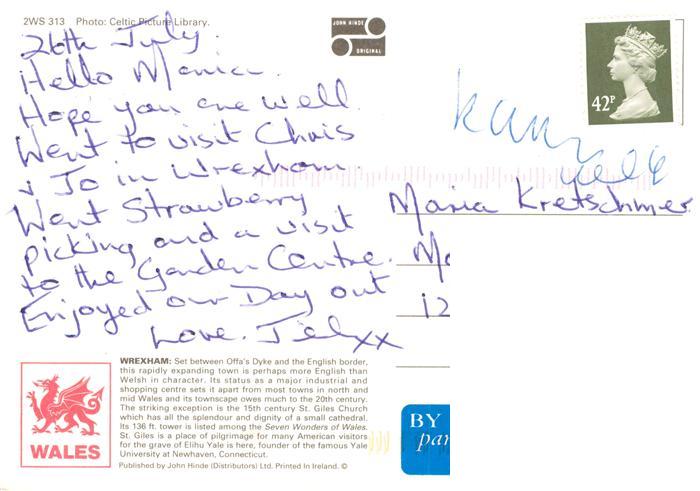 2WS 313 Photo: Celtic Picture Library.
26th July.
Hello Maria.
Hope you are well.
Went to visit Chris
& Jo in Wrexham.
Went Strawberry
picking and a visit
to the Garden Centre.
Enjoyed our Day out
Love.
JOHN HINDE
ORIGINAL
42P
Maria Kretschmer
12
BY
par
WALES
WREXHAM: Set between Offa's Dyke and the English border,
this rapidly expanding town is perhaps more English than
Welsh in character. Its status as a major industrial and
shopping centre sets it apart from most towns in north and
mid Wales and its townscape owes much to the 20th century.
The striking exception is the 15th century St. Giles Church
which has all the splendour and dignity of a small cathedral.
Its 136 ft. tower is listed among the Seven Wonders of Wales.
St. Giles is a place of pilgrimage for many American visitors
for the grave of Elihu Yale is here, founder of the famous Yale
University at Newhaven, Connecticut.
Published by John Hinde (Distributors) Ltd. Printed In Ireland. ©